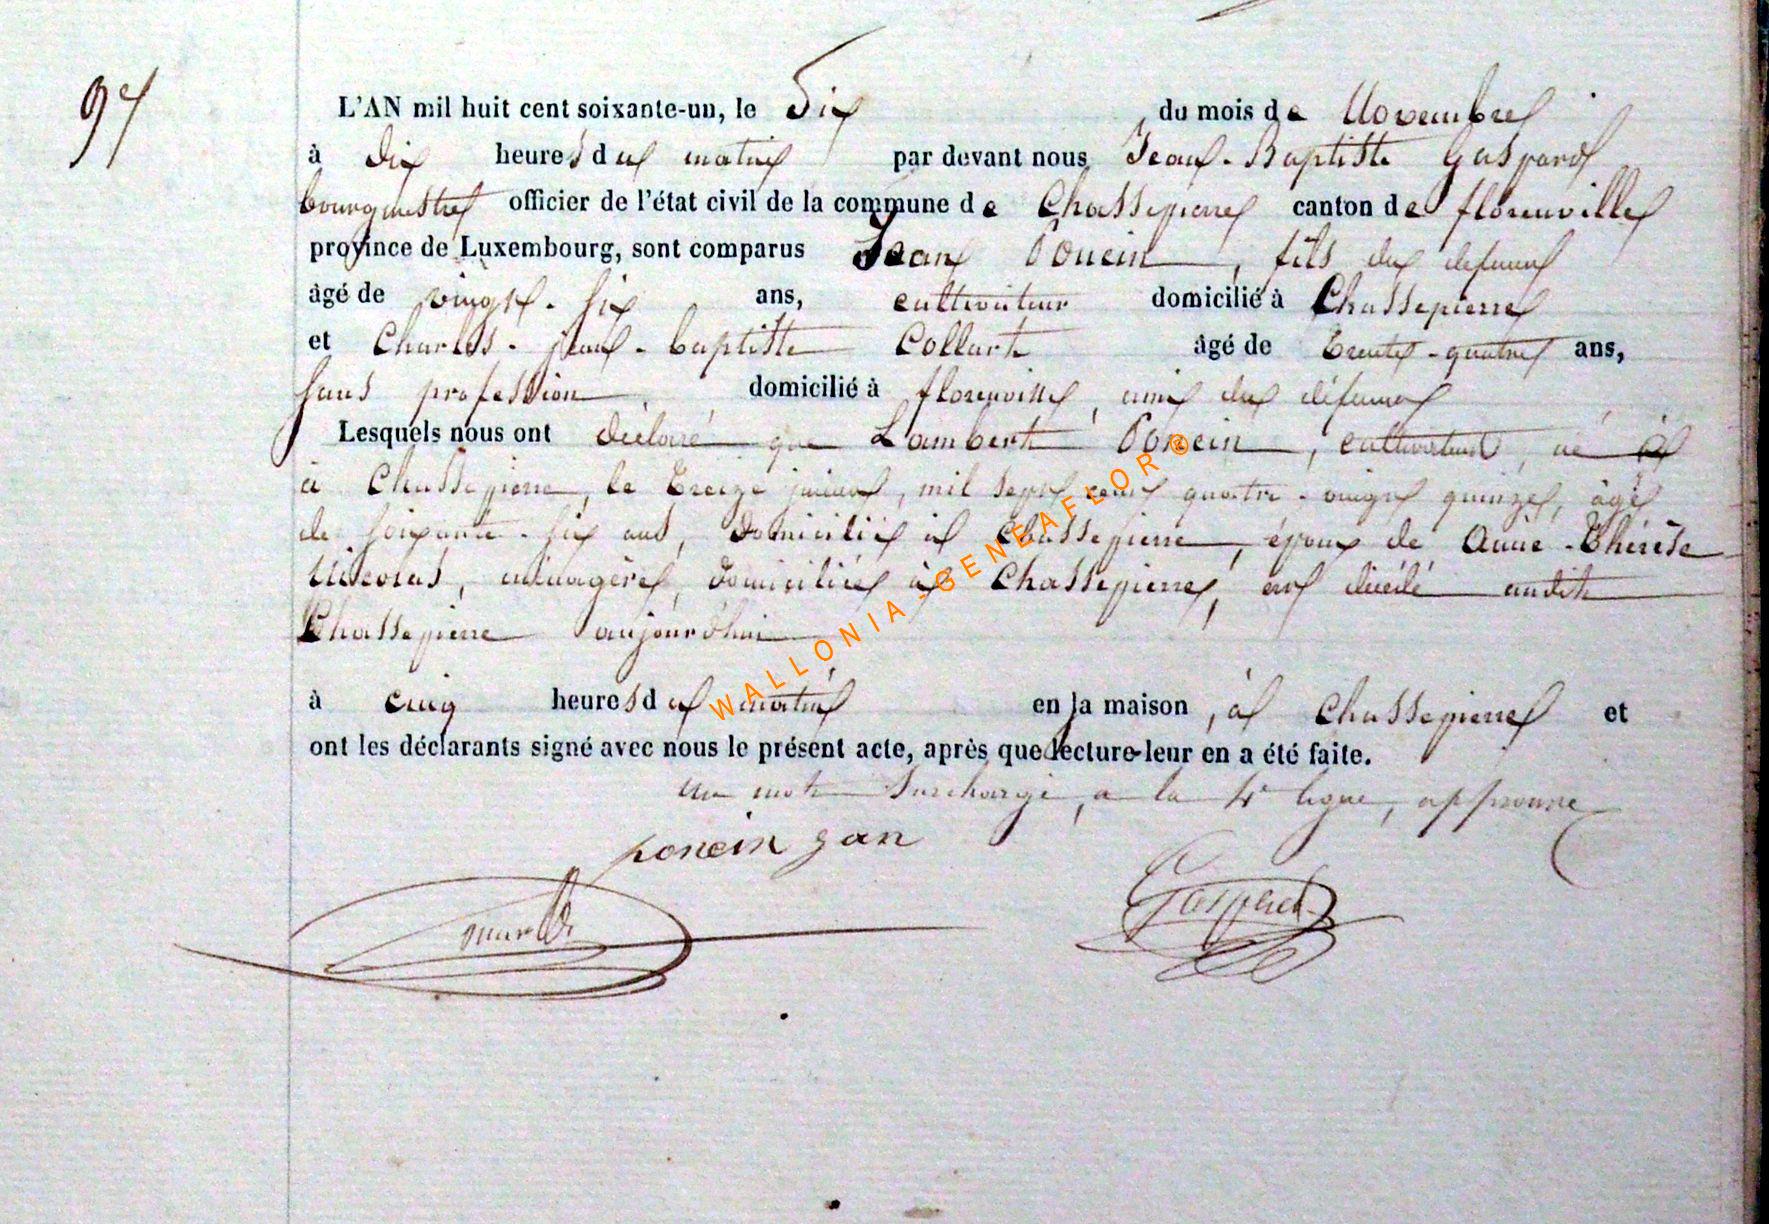 97
L'AN mil huit cent soixante-un, le Six du mois de Novembre
à dix heures du matin par devant nous Jean-Baptiste Gaspard
bourgmestre officier de l'état civil de la commune de Chassepierre canton de florenville
province de Luxembourg, sont comparus Jean Poncin, fils du defunt
âgé de vingt-six ans, cultivateur domicilié à Chassepierre
et Charles-jean-baptiste Collart âgé de trente-quatre ans,
sans profession domicilié à florenville, ami du défunt
Lesquels nous ont déclaré que Lambert Poncin, cultivateur, né à
à Chassepierre, le treize janvier, mil sept cent quatre-vingt quinze, âgé
de soixante-six ans, domicilié à Chassepierre, époux de Anne-Thérèse
Nicolas, ménagère, domiciliée à Chassepierre, est décédé audit
Chassepierre aujourd'hui
à cinq heures du matin en la maison, à Chassepierre et
ont les déclarants signé avec nous le présent acte, après que lecture leur en a été faite.
un mot surchargé, a la 4e ligne, approuvé
poncin jan
Gaspard
WALLONIA - GENEAFLOR ®